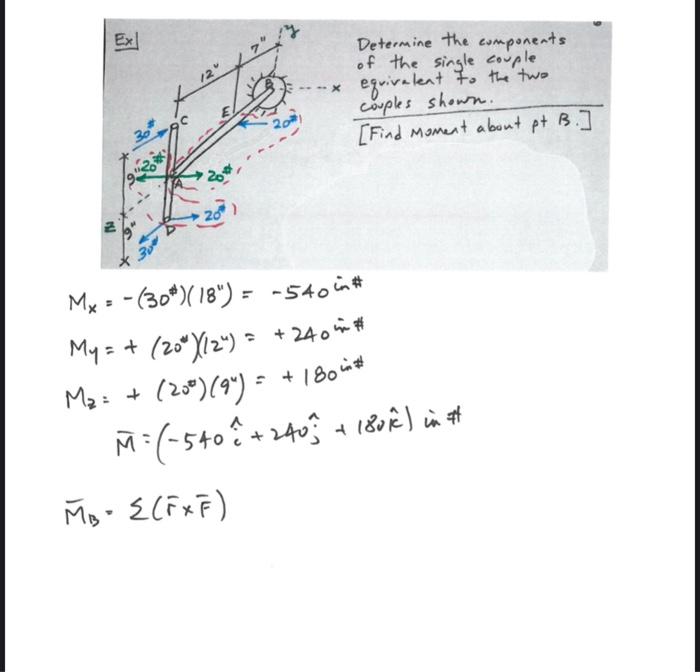 Ex]
y
7"
12"
Determine the components
of the single couple
equivalent to the two
couples shown.
[Find Moment about pt B.]
B
x
E
20#
C
30#
20#
9"
A
20#
z
9"
20#
D
30#
Mx = -(30#)(18") = -540 in#
My = + (20#)(12") = +240 in#
Mz = + (20#)(9") = +180 in#
M̄ = (-540 î + 240 ĵ + 180 k̂) in #
M̄B = Σ(r̄ x F̄)